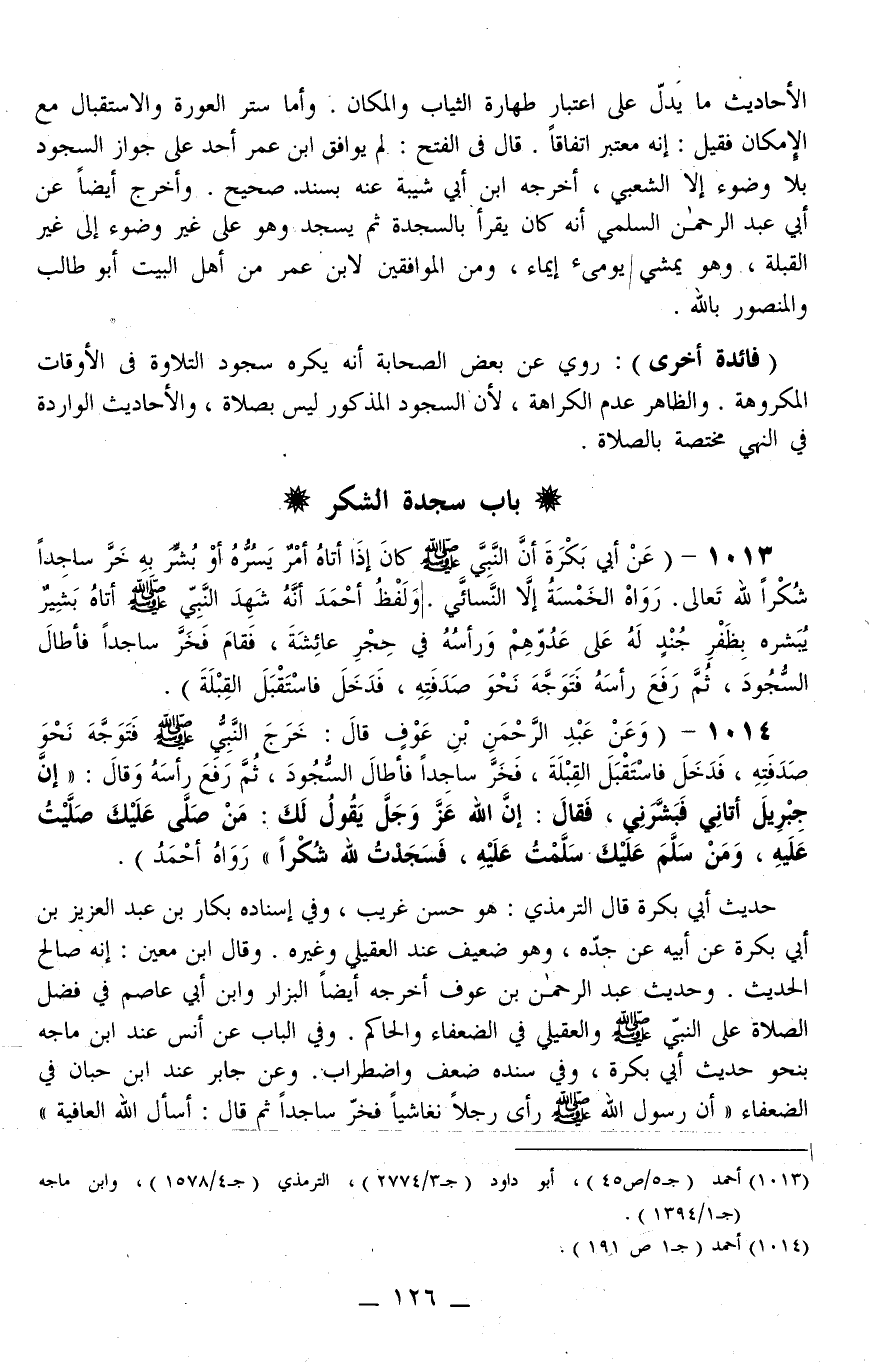 الأحاديث ما يَدلّ على اعتبار طهارة الثياب والمكان . وأما ستر العورة والاستقبال مع
الإمكان فقيل : إنه معتبر اتفاقاً . قال فى الفتح : لم يوافق ابن عمر أحد على جواز السجود
بلا وضوء إلا الشعبي ، أخرجه ابن أبي شيبة عنه بسند صحيح . وأخرج أيضاً عن
أبي عبد الرحمٰن السلمي أنه كان يقرأ بالسجدة ثم يسجد وهو على غير وضوء إلى غير
القبلة ، وهو يمشي يومىء إيماء ، ومن الموافقين لابن عمر من أهل البيت أبو طالب
والمنصور بالله .
( فائدة أخرى ) : روي عن بعض الصحابة أنه يكره سجود التلاوة فى الأوقات
المكروهة . والظاهر عدم الكراهة ، لأن السجود المذكور ليس بصلاة ، والأحاديث الواردة
في النهي مختصة بالصلاة .
باب سجدة الشكر
١٠١٣ – ( عَنْ أبي بَكْرَةَ أنَّ النَّبِيَّ ﷺ كانَ إذَا أتاهُ أمْرٌ يَسُرُّهُ أوْ بُشِّرَ بِهِ خَرَّ ساجِداً
شُكْراً لله تَعالى. رَوَاهُ الخَمْسَةُ إلَّا النَّسائَّي . وَلَفْظُ أحْمَدَ أنَّهُ شَهِدَ النَّبِيّ ﷺ أتاهُ بَشِيرٌ
يُبَشره بِظَفْرِ جُنْدٍ لَهُ عَلى عَدُوّهِمْ وَرأسُهُ في حِجْرِ عائِشَةَ ، فَقامَ فَخَرَّ ساجداً فأطالَ
السُّجُودَ ، ثُمَّ رَفَعَ رأسَهُ فَتَوَجَّه نَحْوَ صَدَفَتِهِ ، فَدَخَلَ فاسْتَقْبَلَ القِبْلَةَ ) .
١٠١٤ – ( وَعَنْ عَبْدِ الرَّحْمَنِ بْنِ عَوْفٍ قالَ : خَرَجَ النَّبِيُّ ﷺ فَتَوَجَّهَ نَحْوَ
صَدَفَتِهِ ، فَدَخَلَ فاسْتَقْبَلَ القِبْلَةَ ، فَخَرَّ ساجداً فأطالَ السُّجُودَ ، ثُمَّ رَفَعَ رأسَهُ وَقالَ : « إنَّ
جِبْرِيلَ أتانِي فَبَشَّرَنِي ، فَقالَ : إنَّ الله عَزَّ وَجَلَّ يَقُولُ لَكَ : مَنْ صَلَّى عَلَيْكَ صَلَّيْتُ
عَلَيهِ ، وَمَنْ سَلَّمَ عَلَيْكَ سَلَّمْتُ عَلَيْهِ ، فَسَجَدْتُ لله شُكْراً » رَوَاهُ أحْمَدُ ) .
حديث أبي بكرة قال الترمذي : هو حسن غريب ، وفي إسناده بكار بن عبد العزيز بن
أبي بكرة عن أبيه عن جدّه ، وهو ضعيف عند العقيلي وغيره . وقال ابن معين : إنه صالح
الحديث . وحديث عبد الرحمٰن بن عوف أخرجه أيضاً البزار وابن أبي عاصم في فضل
الصلاة على النبيّ ﷺ والعقيلي في الضعفاء والحاكم . وفي الباب عن أنس عند ابن ماجه
بنحو حديث أبي بكرة ، وفي سنده ضعف واضطراب. وعن جابر عند ابن حبان في
الضعفاء « أن رسول الله ﷺ رأى رجلاً نغاشياً فخرّ ساجداً ثم قال : أسأل الله العافية »
(١٠١٣) أحمد ( جـ٥/ص٤٥ ) ، أبو داود ( جـ٢٧٧٤/٣ ) ، الترمذي ( جـ١٥٧٨/٤ ) ، وابن ماجه
(جـ١٣٩٤/١ ) .
(١٠١٤) أحمد ( جـ١ ص ١٩١ ) .
– ١٢٦ –